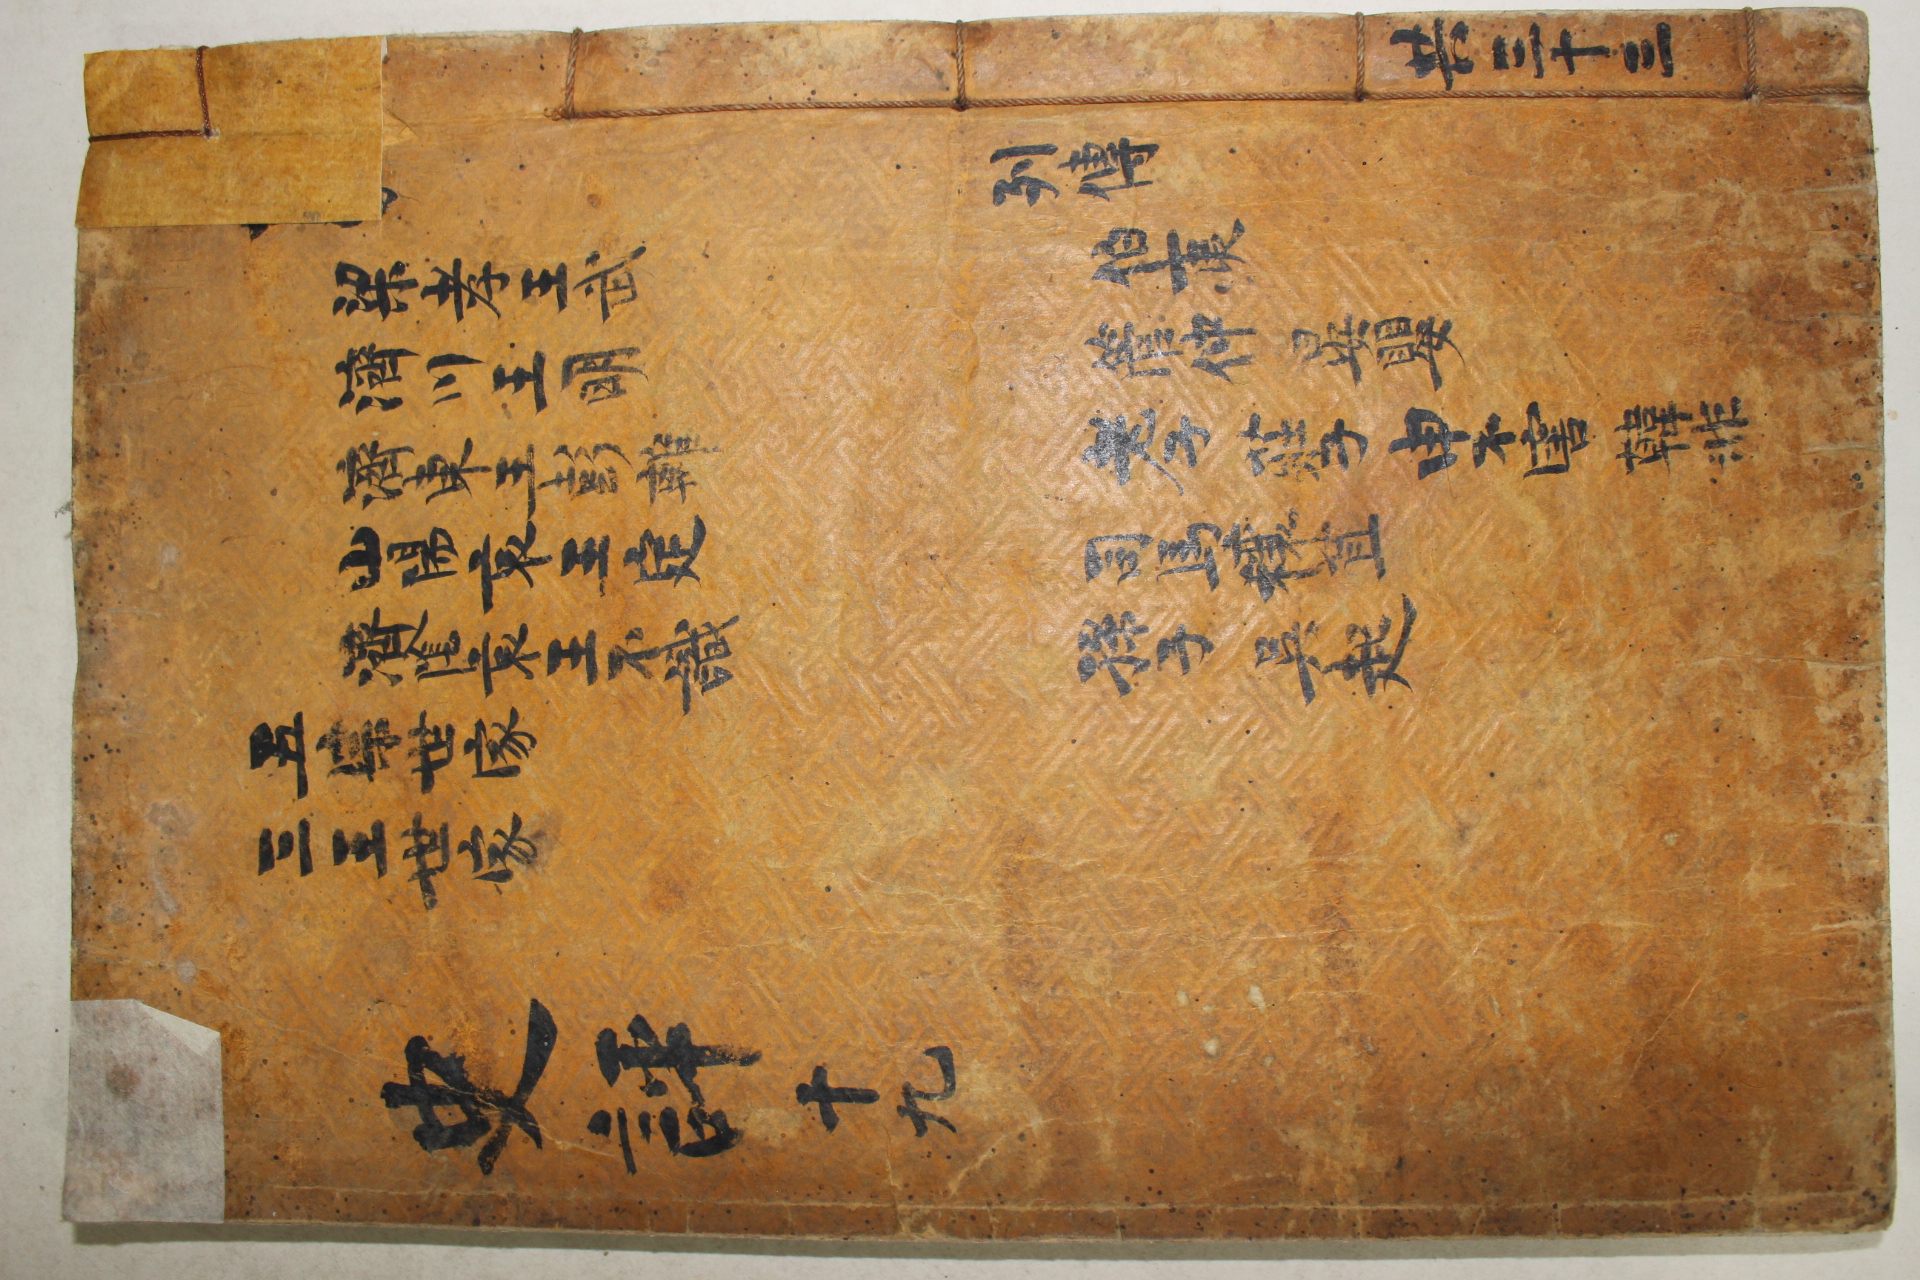 梁孝王武
濟川王明
濟東王彭離
山陽哀王定
濟陰哀王不識
五宗世家
三王世家
列傳
伯夷
管仲 晏嬰
老子 莊子 申不害 韓非
司馬穰苴
孫子 吳起
史評 十九
共三十三